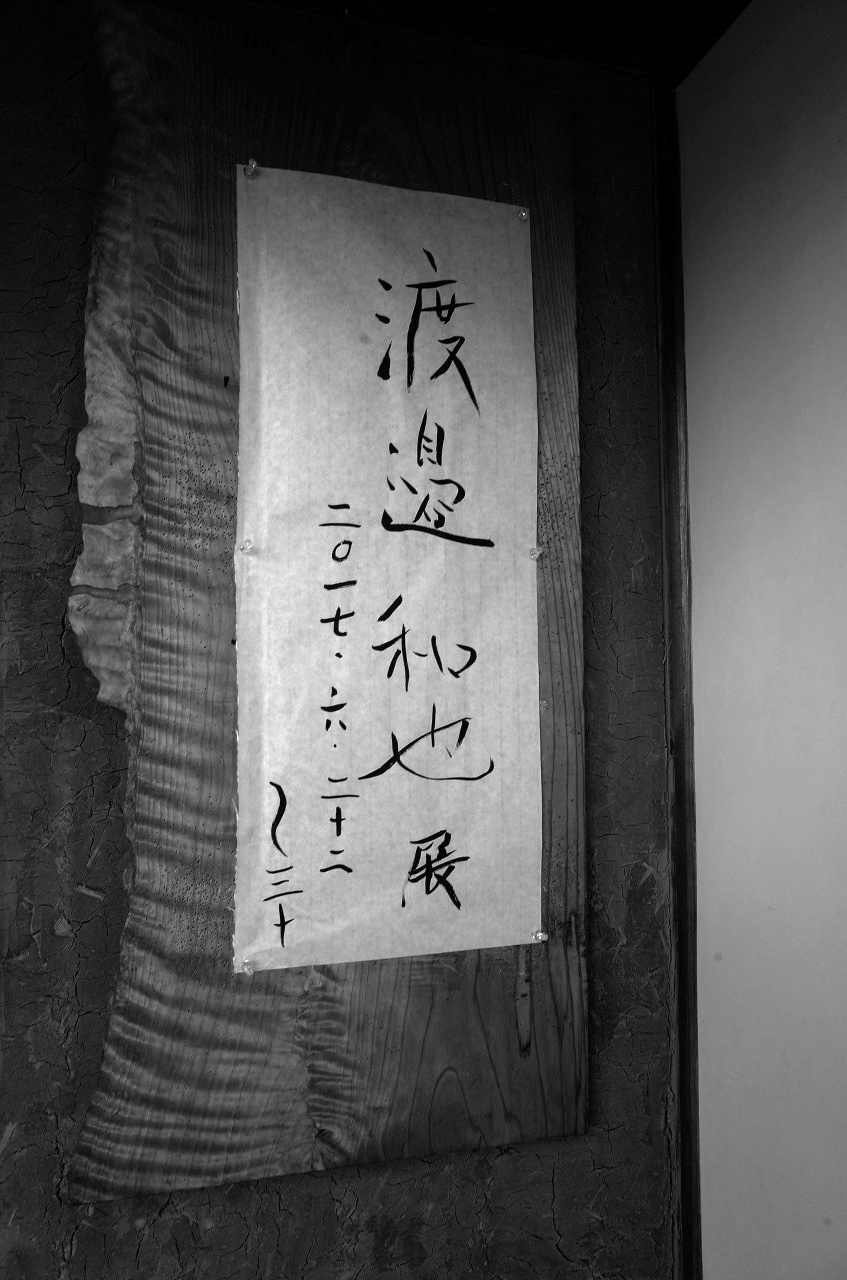 渡邉和也展
二〇一七・六・二十二
～三十